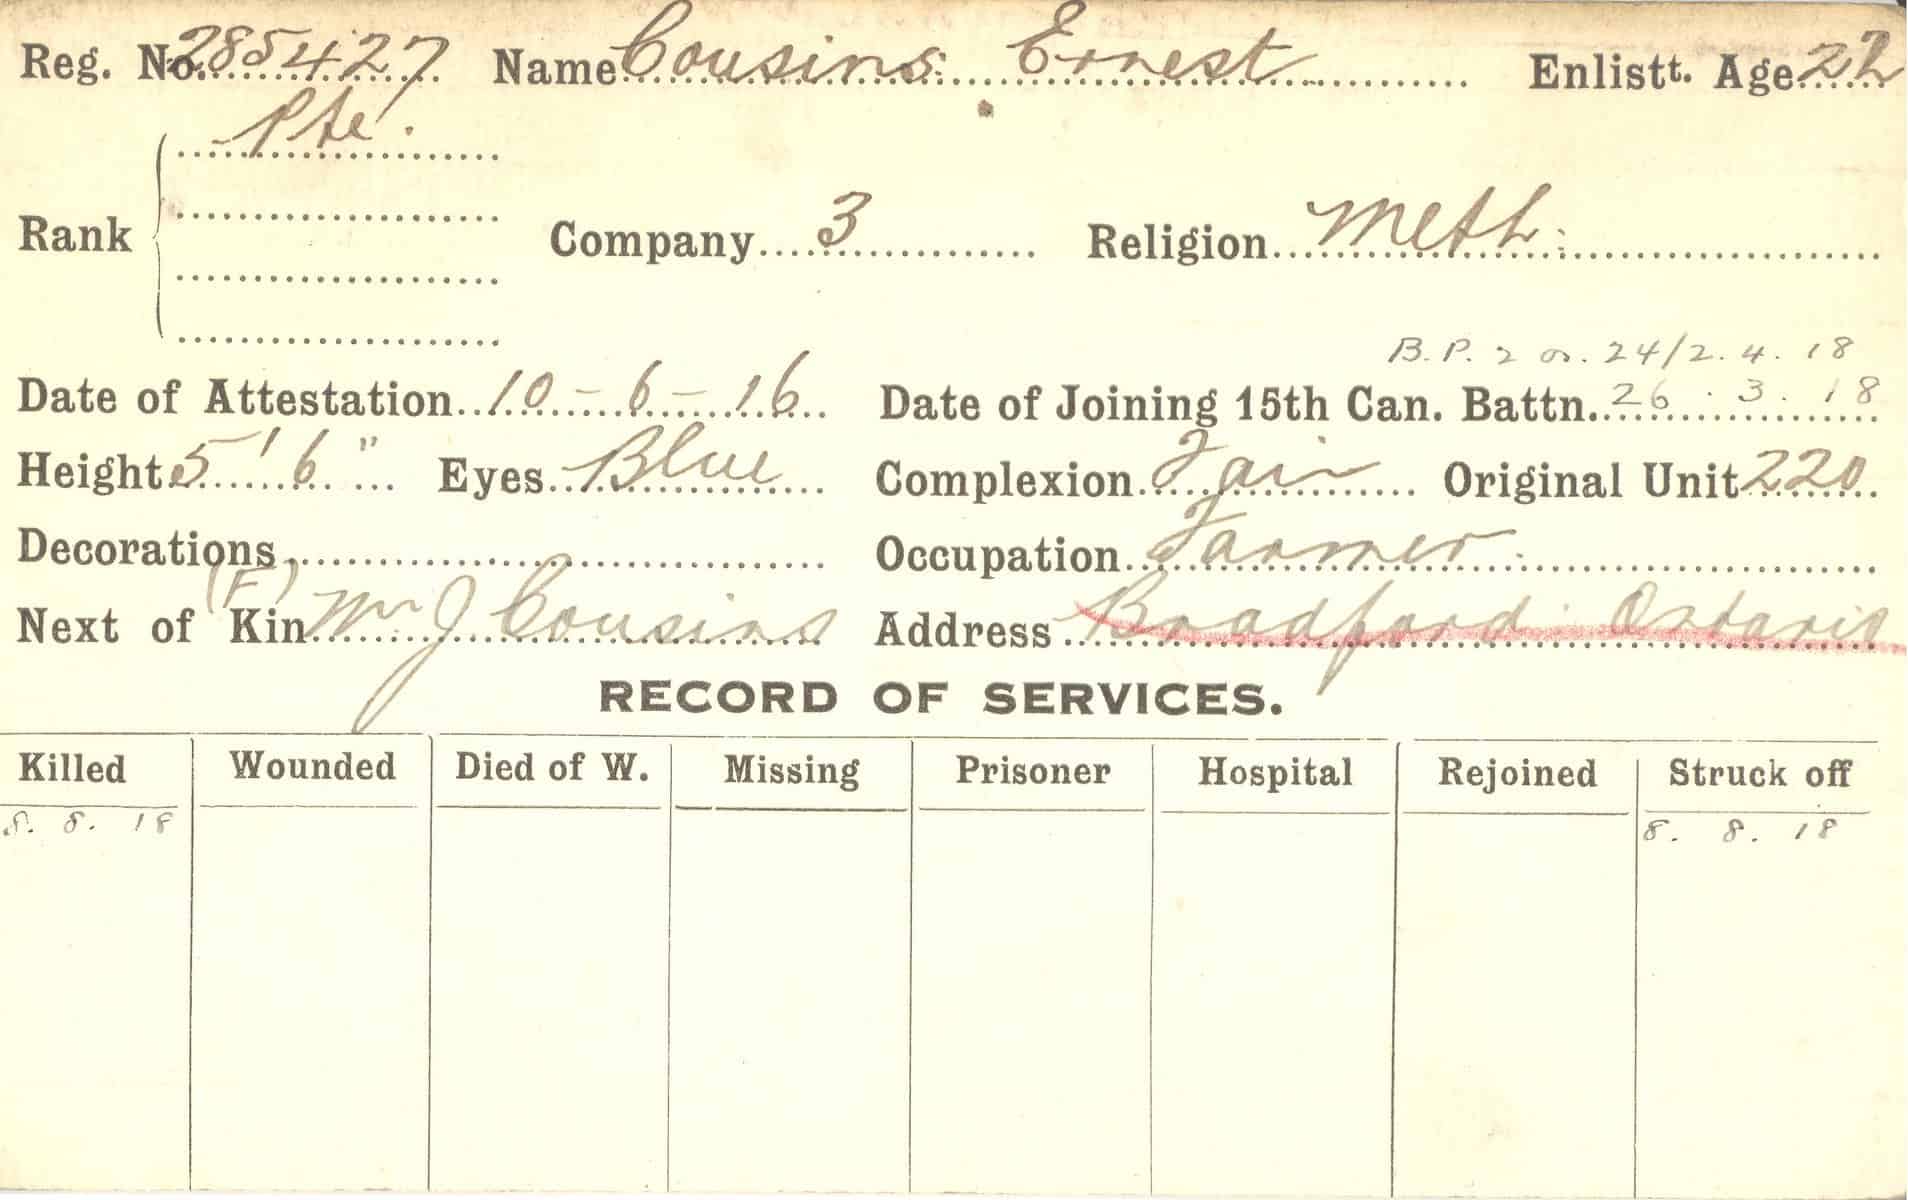 Reg. No. 285427 Name Cousins Ernest Enlistt. Age 22
Pte.
Rank Company 3 Religion Meth.
B.P. 2 or. 24/2.4.18
Date of Attestation 10-6-16 Date of Joining 15th Can. Battn. 26.3.18
Height 5'6" Eyes Blue Complexion Fair Original Unit 220
Decorations Occupation Farmer.
(F)
Next of Kin Mr J Cousins Address Bradford Ontario
RECORD OF SERVICES.
Killed Wounded Died of W. Missing Prisoner Hospital Rejoined Struck off
8. 8. 18 8. 8. 18